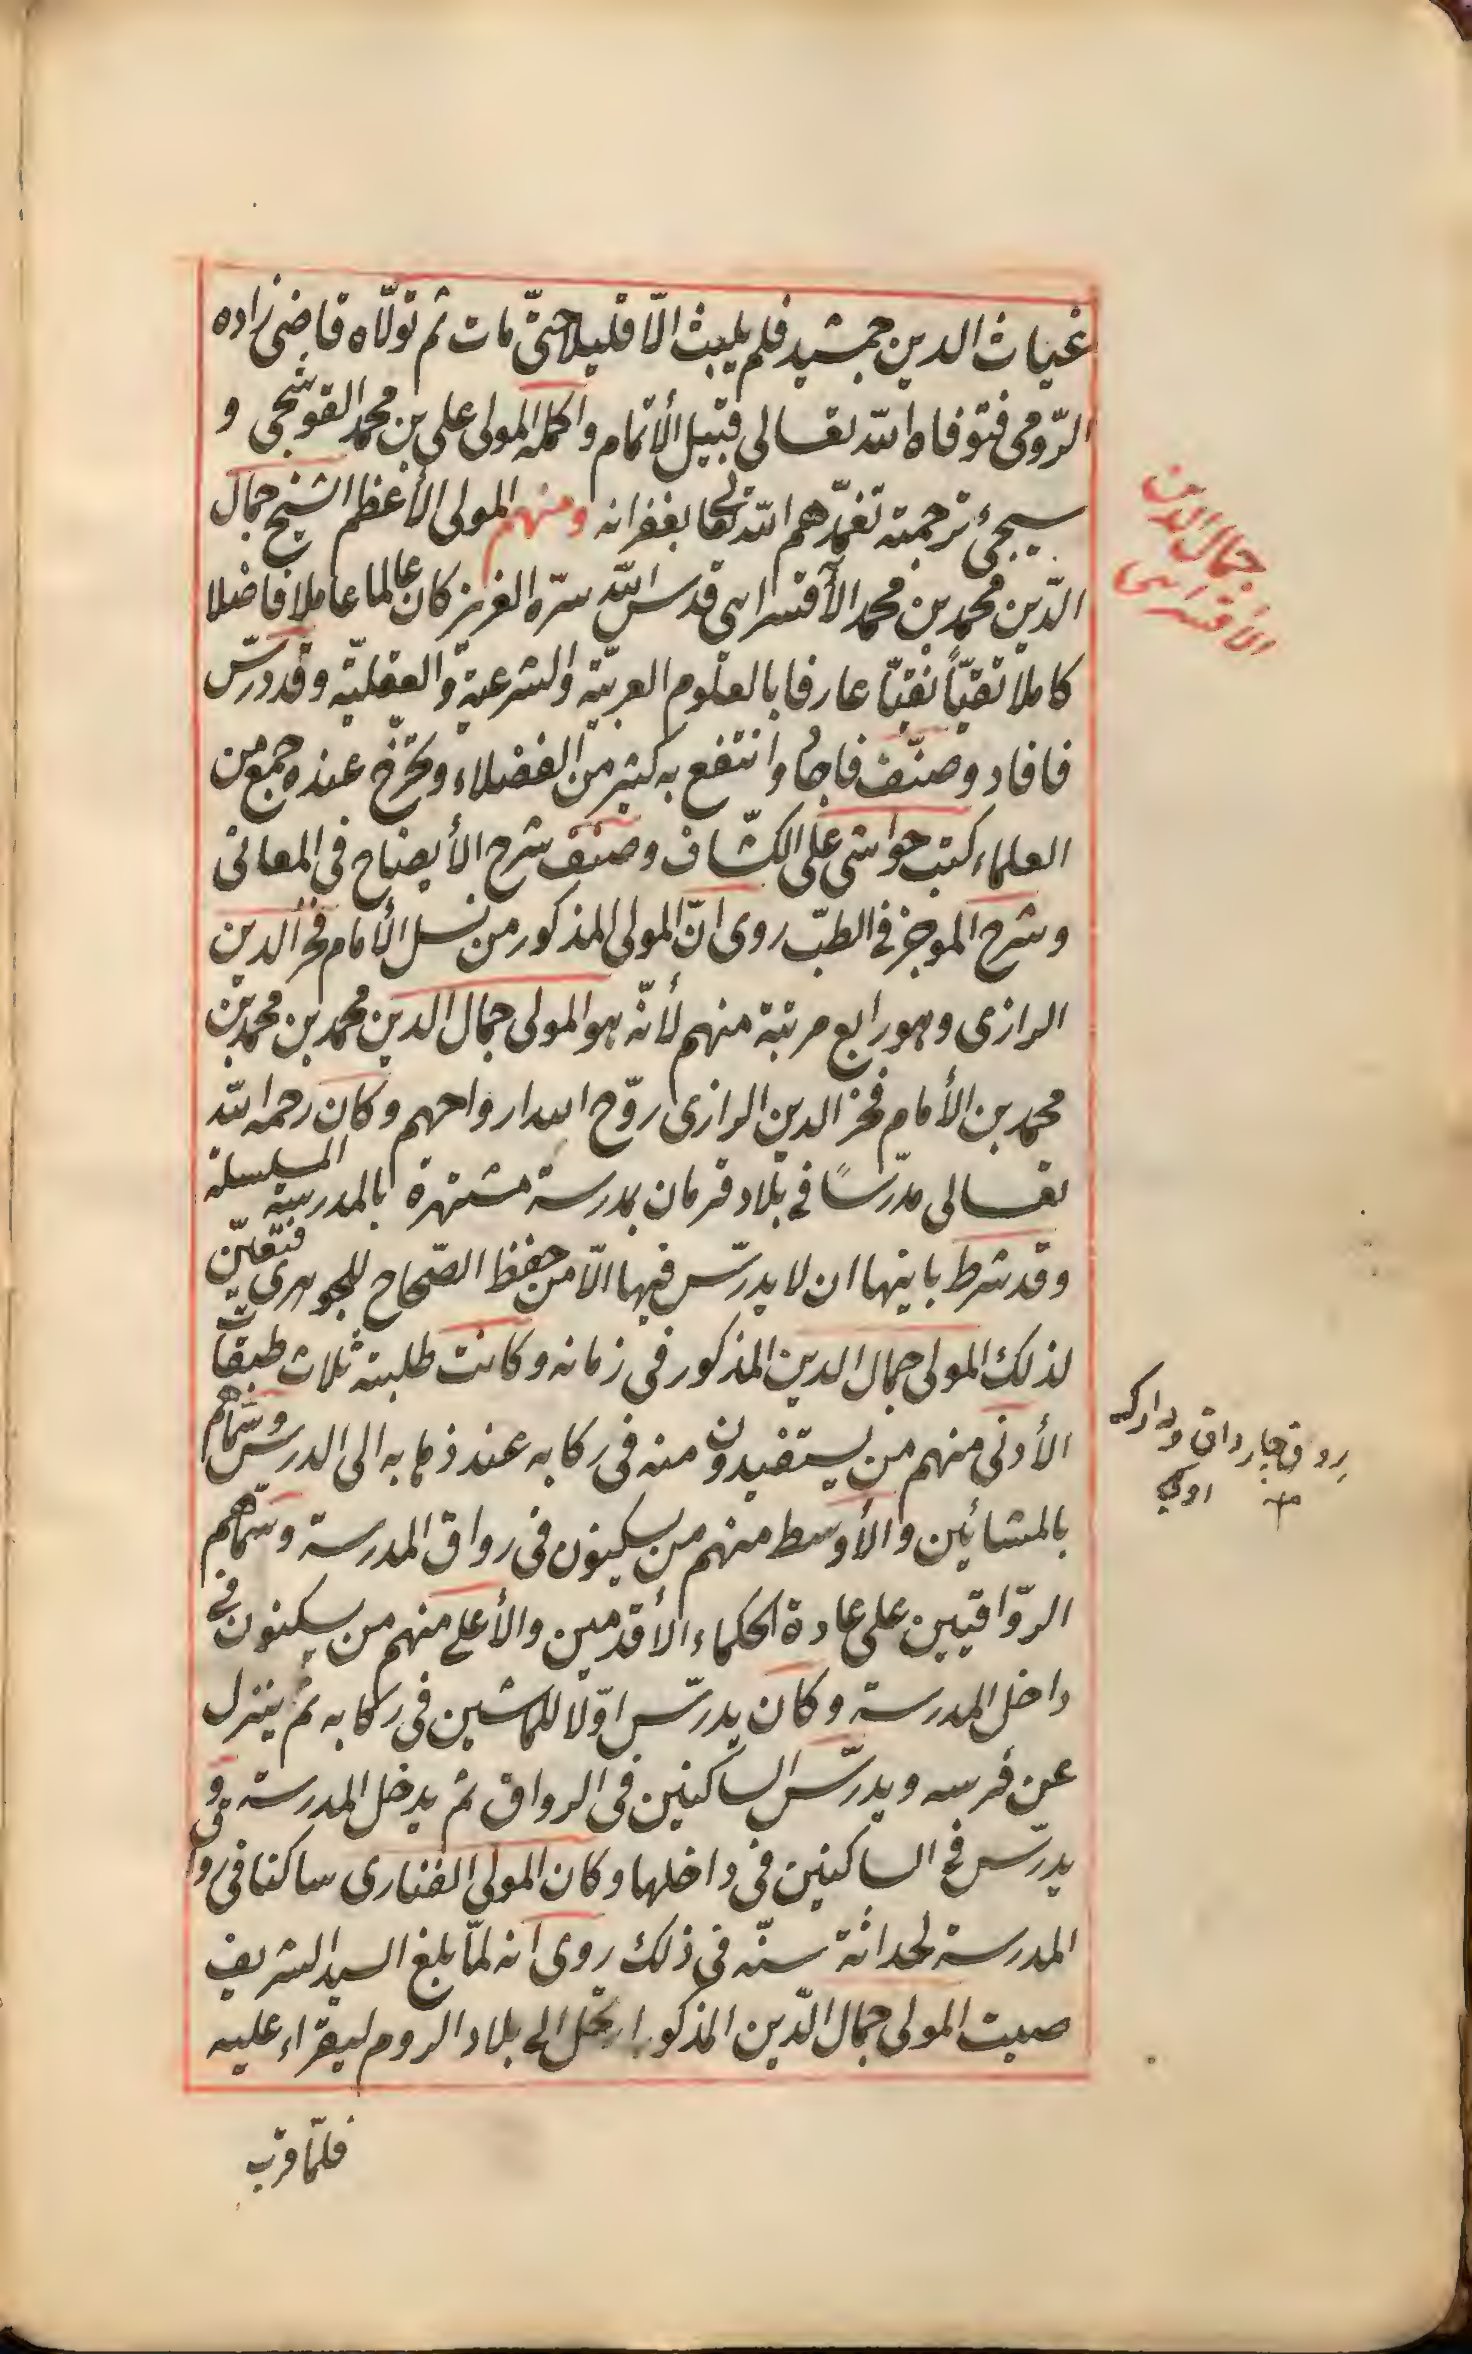 غياث الدين جمشيد فلم يلبث الّا قليلا حتّى مات ثم تولّاه قاضى زاده
الرّومى فتوفاه الله تعالى قبيل الأتمام واكمله المولى على بن محمد القوشجى و
سيجئ ترجمته تغمّدهم الله تعالى بغفرانه ومنهم المولى الأعظم الشيخ جمال
الدّين محمد بن محمد الآقسرايى قدس الله سرّه العزيز كان عالما عاملا فاضلا
كاملا تقيّاً نقيّا عارفا بالعلوم العربيّة والشرعية والعقليّة وقد درّس
فافاد وصنّف فاجاد وانتفع به كثير من الفضلاء وتخرّج عنده جمع من
العلماء كتب حواشى على الكشّاف وصنف شرح الأيضاح فى المعانى
وشرح الموجز فى الطبّ روى انّ المولى المذكور من نسل الأمام فخر الدين
الرازى وهو رابع مرتبة منهم لأنّه هو المولى جمال الدين محمد بن محمد بن
محمد بن الأمام فخر الدين الرازى روّح الله ارواحهم وكان رحمه الله
تعالى مدرّسًا فى بلاد قرمان بمدرسة مشتهرة بالمدرسة المسلسلة
وقد شرط بانيها ان لا يدرّس فيها الّا من حفظ الصّحاح للجوهرى فتعيّن
لذلك المولى جمال الدين المذكور فى زمانه وكانت طلبته ثلاث طبقات
الأدنى منهم من يستفيدون منه فى ركابه عند ذهابه الى الدرس وسمّاهم
بالمشائين والأوسط منهم من يسكنون فى رواق المدرسة وسمّاهم
الرّواقيين على عادة الحكماء الأقدمين والأعلى منهم من يسكنون فى
داخل المدرسة وكان يدرّس اوّلا للماشين فى ركابه ثم ينزل
عن فرسه ويدرّس الساكنين فى الرواق ثم يدخل المدرسة و
يدرّس فى الساكنين فى داخلها وكان المولى الفنارى ساكنا فى رواق
المدرسة لحداثة سنّه فى ذلك روى انه لمّا بلغ السيد الشريف
صيت المولى جمال الدّين المذكور ارتحل الى بلاد الروم ليقراء عليه
فلمّا قرب
جمال الدين
الأقسرايى
رواق